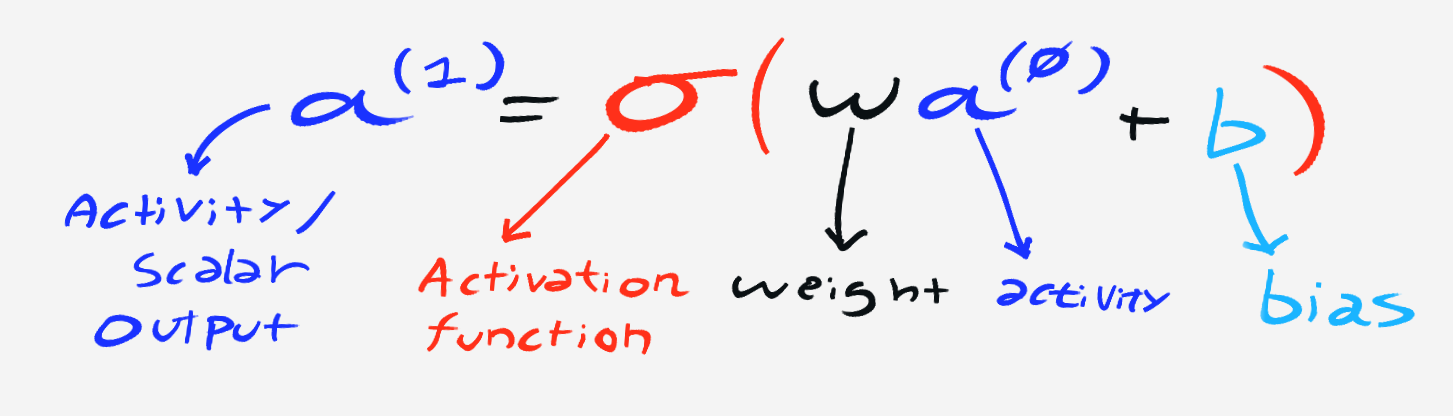 a^(1) = σ(wa^(0) + b)
Activity/
scalar
output
Activation
function
weight
activity
bias